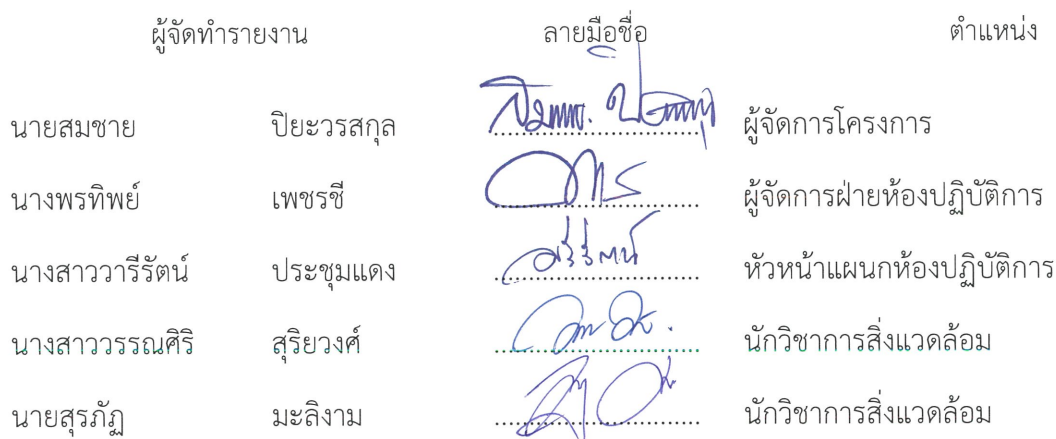 ผู้จัดทำรายงาน ลายมือชื่อ ตำแหน่ง
นายสมชาย ปิยะวรสกุล ผู้จัดการโครงการ
นางพรทิพย์ เพชรชี ผู้จัดการฝ่ายห้องปฏิบัติการ
นางสาววารีรัตน์ ประชุมแดง หัวหน้าแผนกห้องปฏิบัติการ
นางสาววรรณศิริ สุริยวงศ์ นักวิชาการสิ่งแวดล้อม
นายสุรภัฏ มะลิงาม นักวิชาการสิ่งแวดล้อม